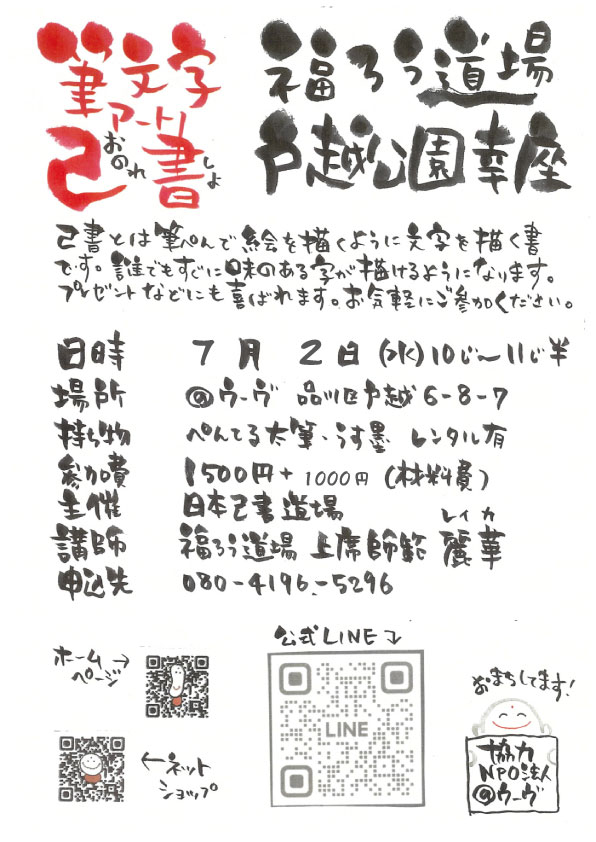 筆文字
アート!
己書
おのれ
しょ
福ろう道場
戸越公園幸座
己書とは筆ぺんで絵を描くように文字を描く書
です。誰でもすぐに味のある字が描けるようになります。
プレゼントなどにも喜ばれます。お気軽にご参加ください。
日時 7月 2日(水)10じ〜11じ半
場所 @ウーヴ 品川区戸越6-8-7
持ち物 ぺんてる太筆・うす墨 レンタル有
参加費 1500円+1000円(材料費)
主催 日本己書道場
レイカ
講師 福ろう道場 上席師範 麗華
申込先 080-4196-5296
公式LINE↓
ホーム→
ページ
LINE
おまちしてます!
←ネット
ショップ
協力
NPO法人
@ウーヴ